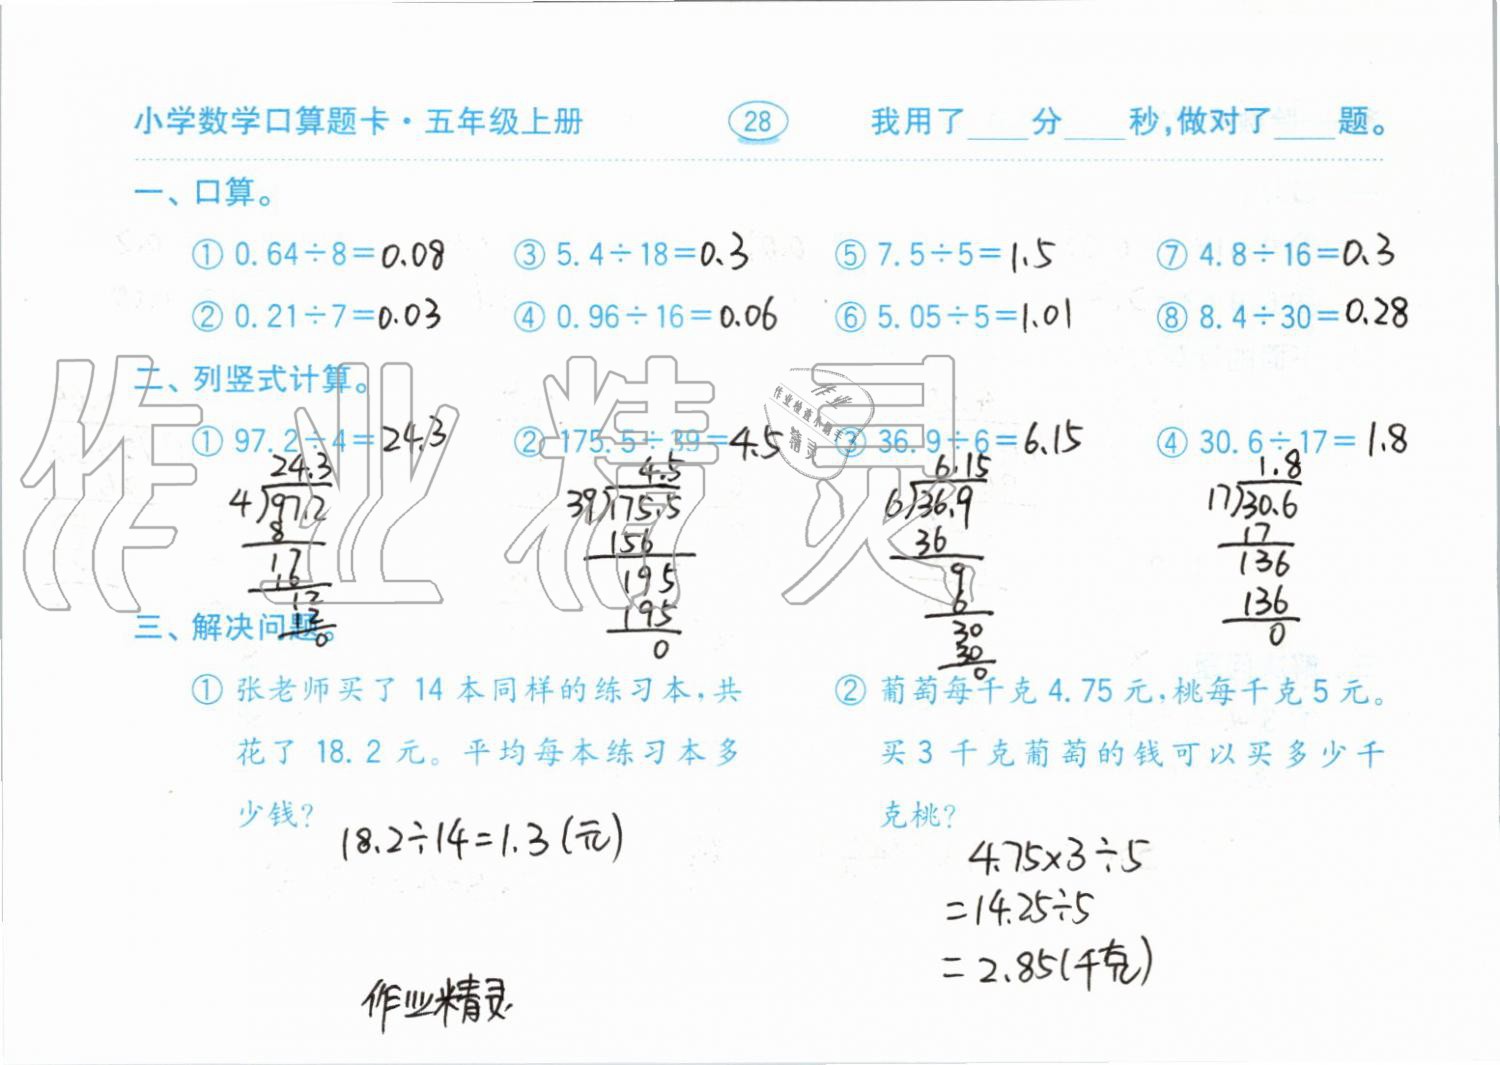 小学数学口算题卡·五年级上册 28 我用了____分____秒,做对了____题。
一、口算。
① 0.64÷8=0.08 ③ 5.4÷18=0.3 ⑤ 7.5÷5=1.5 ⑦ 4.8÷16=0.3
② 0.21÷7=0.03 ④ 0.96÷16=0.06 ⑥ 5.05÷5=1.01 ⑧ 8.4÷30=0.28
二、列竖式计算。
① 97.2÷4=24.3 ② 175.5÷39=4.5 ③ 36.9÷6=6.15 ④ 30.6÷17=1.8
24.3 4.5 6.15 1.8
4)97.2 39)175.5 6)36.9 17)30.6
8 156 36 17
17 195 9 136
16 195 6 136
12 0 30 0
12 30
0 0
三、解决问题。
① 张老师买了 14 本同样的练习本,共
花了 18.2 元。平均每本练习本多
少钱?
18.2÷14=1.3(元)
② 葡萄每千克 4.75 元,桃每千克 5 元。
买 3 千克葡萄的钱可以买多少千
克桃?
4.75×3÷5
=14.25÷5
=2.85(千克)
作业精灵
作业精灵
作业
作业检查小助手
精灵